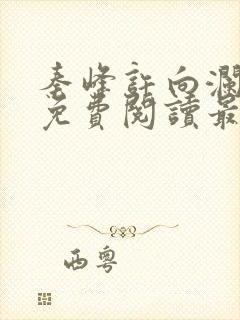 秦峰許向瀾
免費閱讀最
西粵